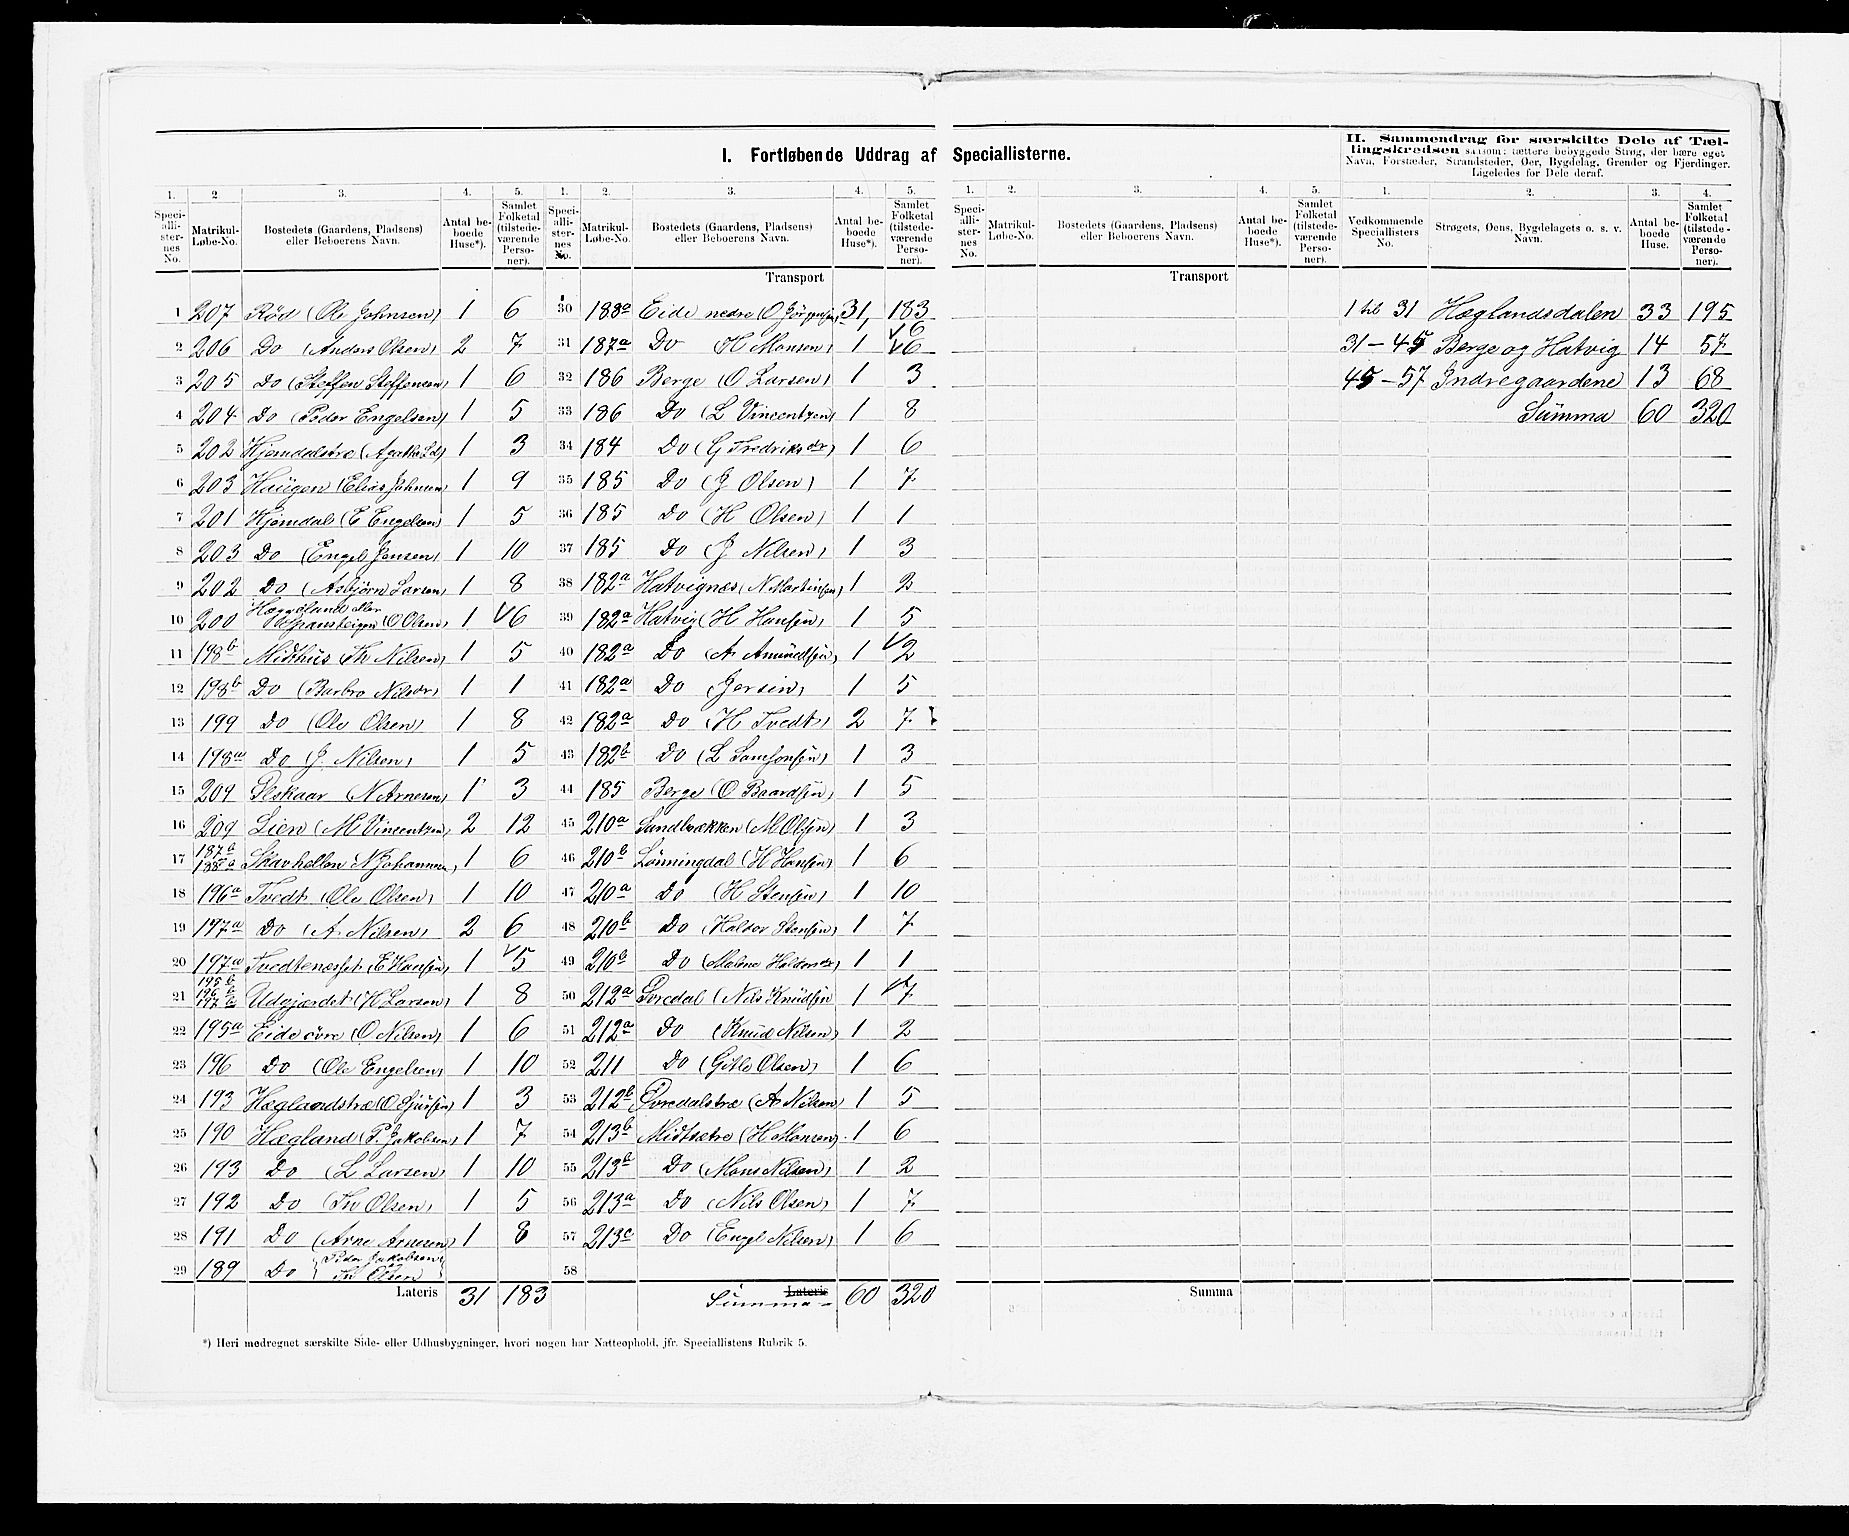 I. Fortløbende Uddrag af Speciallisterne.
II. Sammendrag for særskilte Dele af Tællingskredsen saasom: tættere bebyggede Strøg, der bære eget Navn, Forstæder, Strandsteder, Øer, Bygdelag, Grender og Fjerdinger. Ligeledes for Dele deraf.
1. 2. 3. 4. 5. 1. 2. 3. 4. 5. 1. 2. 3. 4. 5. 1. 2. 3. 4.
Speciallisternes No. Matrikul-Løbe-No. Bostedets (Gaardens, Pladsens) eller Beboerens Navn. Antal beboede Huse*). Samlet Folketal (tilstedeværende Personer).
Speciallisternes No. Matrikul-Løbe-No. Bostedets (Gaardens, Pladsens) eller Beboerens Navn. Antal beboede Huse*). Samlet Folketal (tilstedeværende Personer).
Speciallisternes No. Matrikul-Løbe-No. Bostedets (Gaardens, Pladsens) eller Beboerens Navn. Antal beboede Huse*). Samlet Folketal (tilstedeværende Personer).
Vedkommende Speciallisters No. Strøgets, Øens, Bygdelagets o. s. v. Navn. Antal beboede Huse. Samlet Folketal (tilstedeværende Personer).
Transport
Transport
1 207 Rød (Ole Johnsen) 1 6
2 206 Do (Anders Olsen) 2 7
3 205 Do (Steffen Steffensen) 1 6
4 204 Do (Peder Engelsen) 1 5
5 202 Hjemdalstræ (Agatha 1 3
6 203 Haugen (Elias Johnsen) 1 9
7 201 Hjemdal (E Engelsen) 1 5
8 203 Do (Engel Jansen) 1 10
9 202 Do (Asbjørn Larsen) 1 8
10 200 (O Olsen) 1 6
11 198b Midthus (Th Nilsen) 1 5
12 198b Do (Barbro Nilsdr) 1 1
13 199 Do (Ole Olsen) 1 8
14 198a Do (J. Nilsen) 1 5
15 209 (N Arnesen) 1 3
16 209 Lien (M Vincentzen) 2 12
17 187b 188a Skavhellen (N Johannesen) 1 6
18 196a Tvedt (Ole Olsen) 1 10
19 197a Do (A Nilsen) 2 6
20 197a Tvedtenæsset (E Hansen) 1 5
21 195b 196b 197b Udgjærdet (H Larsen) 1 8
22 195a Eide övre (O Nilsen) 1 6
23 196 Do (Ole Engelsen) 1 10
24 193 Hæglandstræ (O 1 3
25 190 Hægland (P. Jakobsen) 1 7
26 193 Do (L Larsen) 1 10
27 192 Do (Th Olsen) 1 5
28 191 Do (Arne Arnesen) 1 8
29 189 Do {Peder Jakobsen Th Olsen}
Lateris 31 183
30 188a Eide nedre (O Jörgensen) 31, 183 6
31 187a Do (H Monsen) 1 6
32 186 Berge (O Larsen) 1 3
33 186 Do (L Vincentzen) 1 8
34 184 Do (G Fredriksdr) 1 6
35 185 Do (J Olsen) 1 7
36 185 Do (H Olsen) 1 1
37 185 Do (J Nilsen) 1 3
38 182a Hatvignæs (N Martinsen) 1 2
39 182a Hatvig (H Hansen) 1 5
40 182a Do (A Amundsen) 1 2
41 182a Do (Jersin) 1 5
42 182a Do (H Tvedt) 2 7
43 182b Do (L Samsonsen) 1 3
44 185 Berge (O Baardsen) 1 5
45 210a Sandbækken (M Olsen) 1 3
46 210b Lönningdal (H Hansen) 1 6
47 210a Do (H Stensen) 1 10
48 210b Do (Haldor Stensen) 1 7
49 210b Do (Malene Haldorsdr) 1 1
50 212a Øvredal (Nils Knudsen 1 7
51 212a Do (Knud Nilsen) 1 2
52 211 Do (Gitle Olsen) 1 6
53 212b Øvredalstræ (A Nilsen) 1 5
54 213b Midtsætre (H Monsen) 1 6
55 213b Do (Mons Nilsen) 1 2
56 213a Do (Nils Olsen) 1 7
57 213c Do (Engel Nilsen) 1 6
58
Lateris
Summa 60 320
Summa
1 til 31 Hæglandsdalen 33 195
31-45 Berge og Hatvig 14 57
45-57 Indregaardene 13 68
Summa 60 320
*) Heri medregnet særskilte Side- eller Udhusbygninger, hvori nogen har Natteophold, jfr. Speciallistens Rubrik 5.